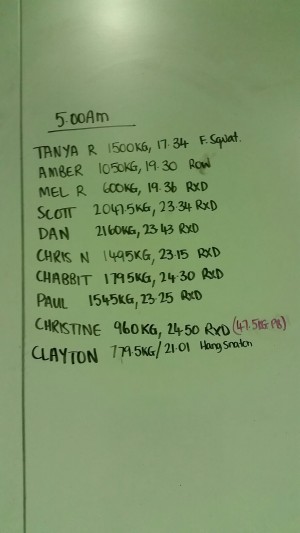 5:00Am
TANYA R 1500KG, 17.34 F.Squat.
AMBER 1050KG, 19.30 Row
MEL R 600KG, 19.36 RXD
SCOTT 2047.5KG, 23.34 RXD
DAN 2160KG, 23.43 RXD
CHRIS N 1495KG, 23.15 RXD
CHABBIT 1795KG, 24.30 RXD
PAUL 1545KG, 23.25 RXD
CHRISTINE 960KG, 24.50 RXD (47.5KG PB)
CLAYTON 779.5KG/21.01 Hang Snatch